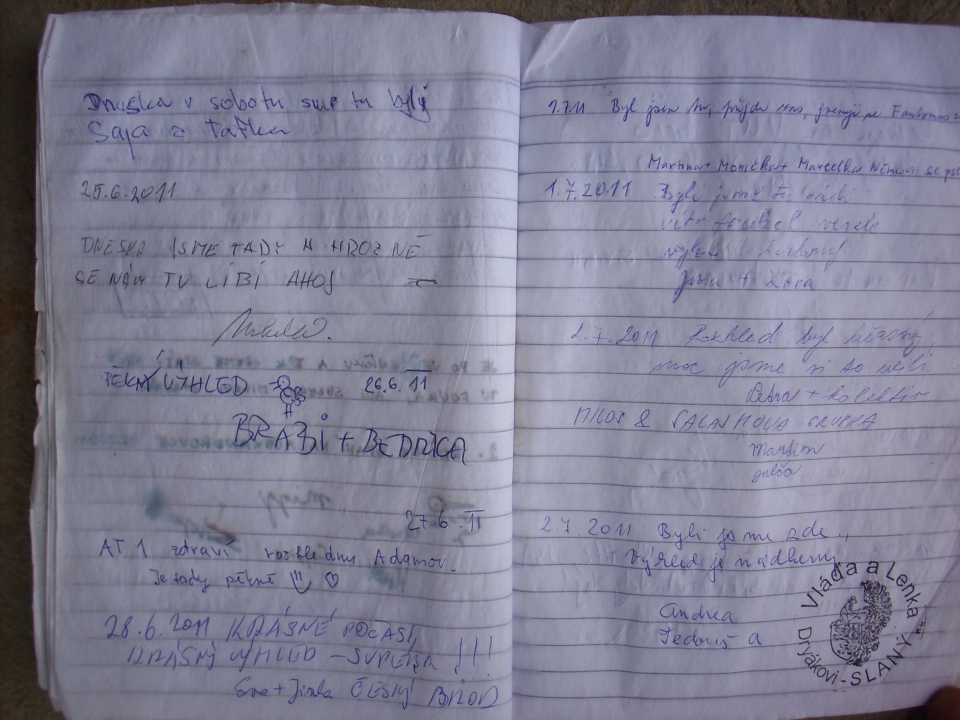 Dneska v sobotu sme tu byly
Saja a Taťka
25.6.2011
DNESKA JSME TADY A HROZNĚ
SE NÁM TU LÍBÍ AHOJ
PĚKNÝ VÝHLED 26.6.11
BRABI + BEDRICA
27.6.11
AT 1 zdraví rozhledny Adamov.
Je tady pěkně
28.6.2011 KRÁSNÉ POČASÍ,
KRÁSNÝ VÝHLED - SUPEEŘA !!!
Eva + Jirka ČESKÝ BROD
1.7.11 Byl jsem tu, jmenuji se Fantomas
Martina + Monička + Marcelka
1.7.2011 Byli jsme tu
vítr foukal vesele
výhled
Jana + Klára
2.7.2011 Rozhled byl úžasný,
moc jsme si to užili
Petra + kolektiv
MILOŠ &
Martin
Julča
2 7 2011 Byli jsme zde,,
výhled je nádherný
Andrea
a
Vláďa a Lenka
Dryákovi - SLANÝ